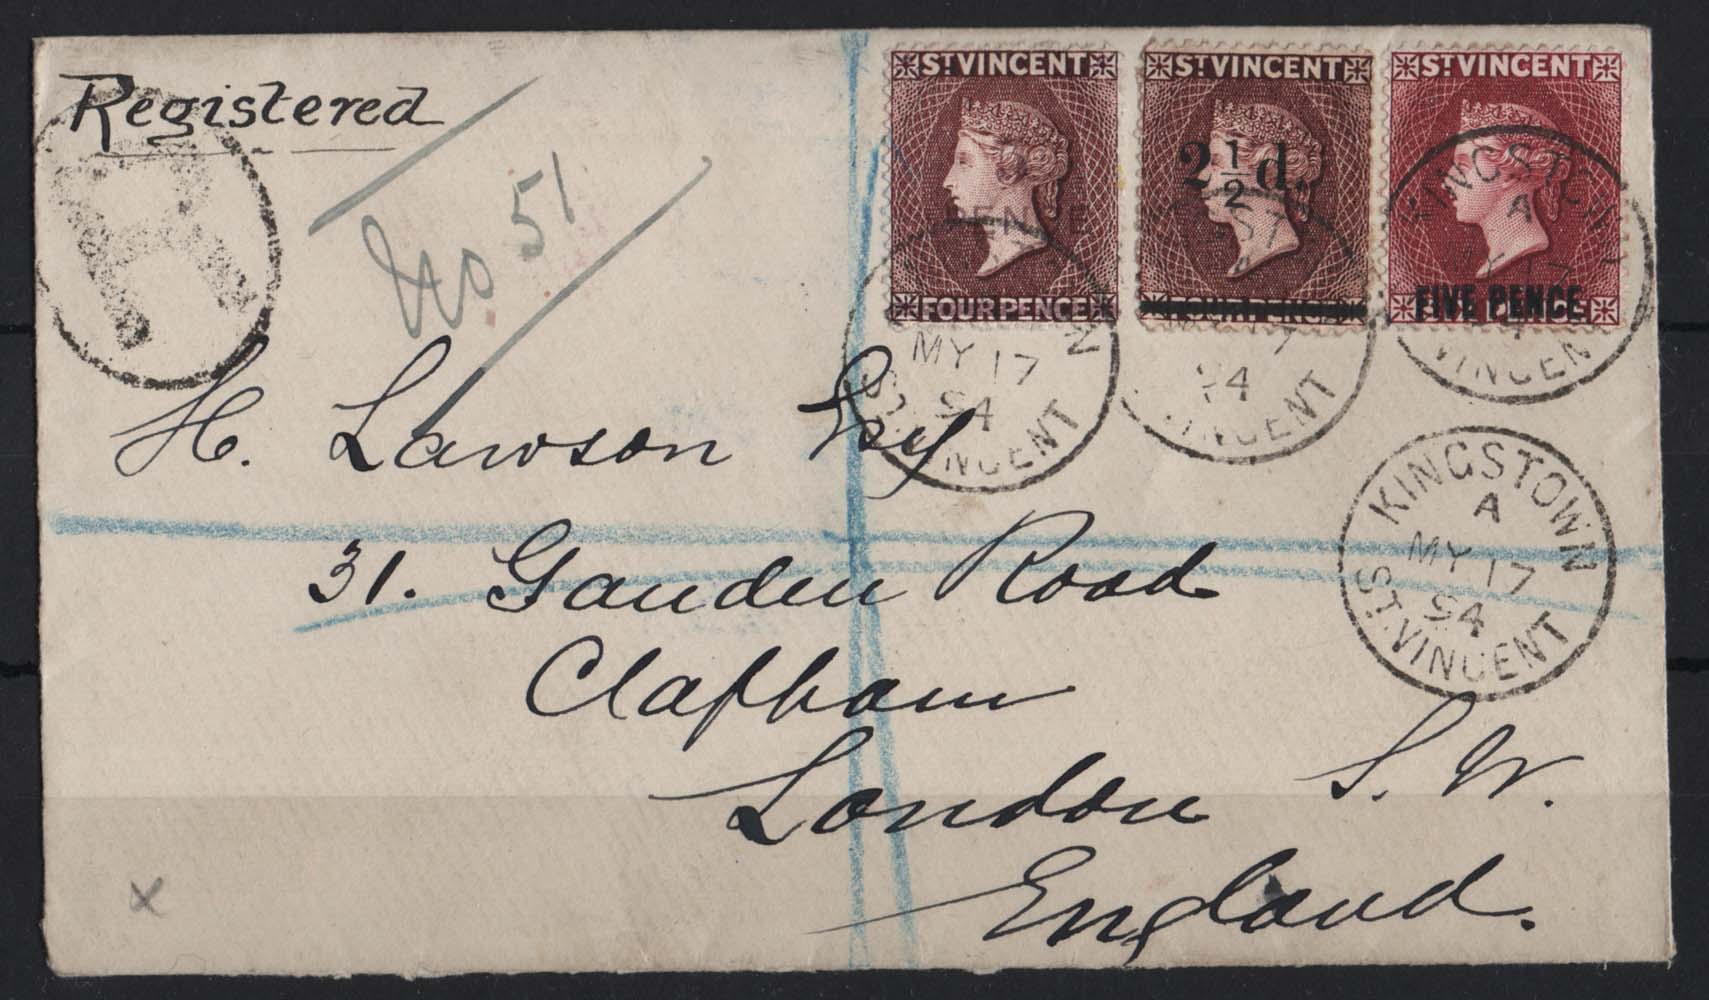 Registered
R
No 51
ST VINCENT
FOUR PENCE
ST VINCENT
2 1/2 d.
FOUR PENCE
ST VINCENT
FIVE PENCE
SIX PENCE
MY 17
94
ST. VINCENT
94
VINCENT
KINGSTOWN
A
MY 17
VINCENT
KINGSTOWN
A
MY 17
94
ST. VINCENT
H. Lawson Esq
31. Gauden Road
Clapham
London S. W.
England.
x